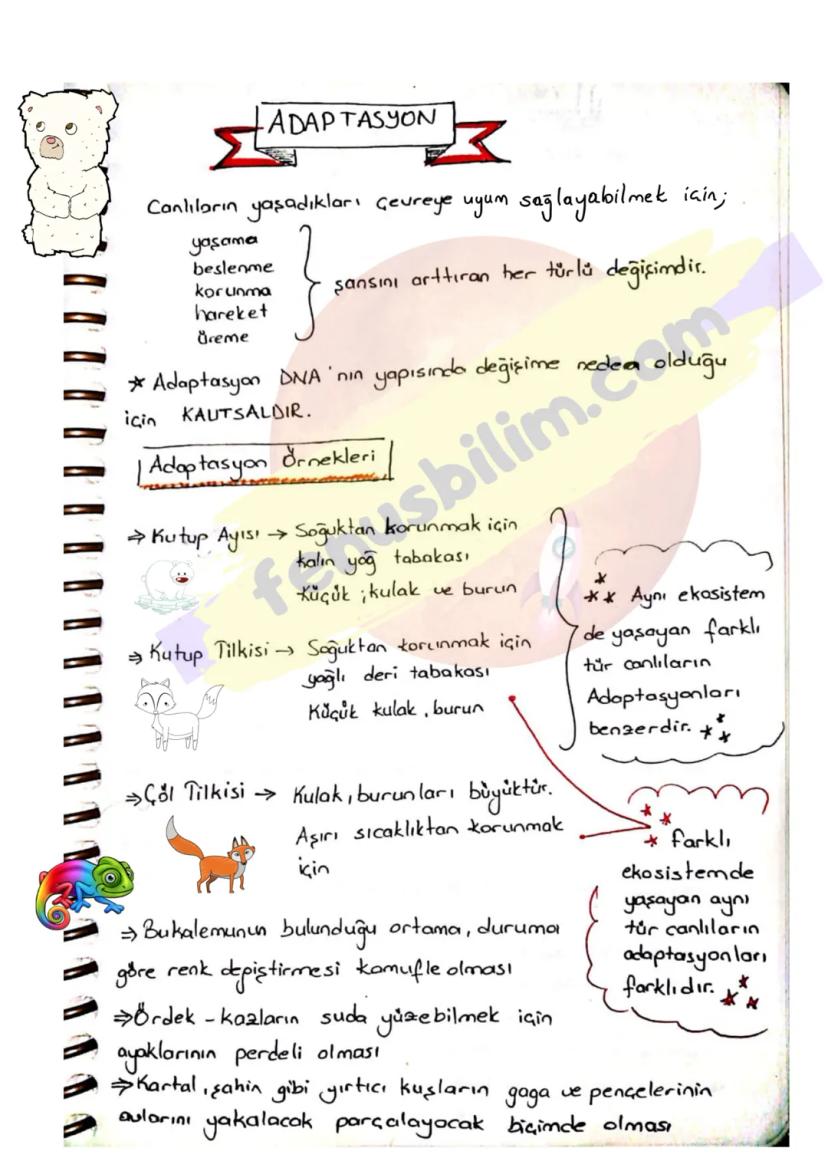 ADAPTASYON
Canlıların yaşadıkları çevreye uyum sağlayabilmek için;
yaşama
beslenme
korunma
hareket
üreme
şansını arttıran her türlü değişimdir.
* Adaptasyon DNA'nın yapısında değişime neden olduğu
için KALITSALDIR.
Adaptasyon Örnekleri
⇒ Kutup Ayısı → Soğuktan korunmak için
kalın yağ tabakası
Küçük ; kulak ve burun
⇒ Kutup Tilkisi → Soğuktan korunmak için
yağlı deri tabakası
Küçük kulak, burun
*
** Aynı ekosistem
de yaşayan farklı
tür canlıların
Adaptasyonları
benzerdir. ***
⇒ Çöl Tilkisi → Kulak, burunları büyüktür.
Aşırı sıcaklıktan korunmak
için
* *
* farklı
ekosistemde
yaşayan aynı
tür canlıların
adaptasyonları
farklıdır. ***
⇒ Bukalemunun bulunduğu ortama, duruma
göre renk depiştirmesi kamufle olması
⇒ Ördek - kazların suda yüzebilmek için
ayaklarının perdeli olması
⇒ Kartal, şahin gibi yırtıcı kuşların gaga ve pençelerinin
avlarını yakalacak parçalayacak biçimde olması
fenusbilim.com